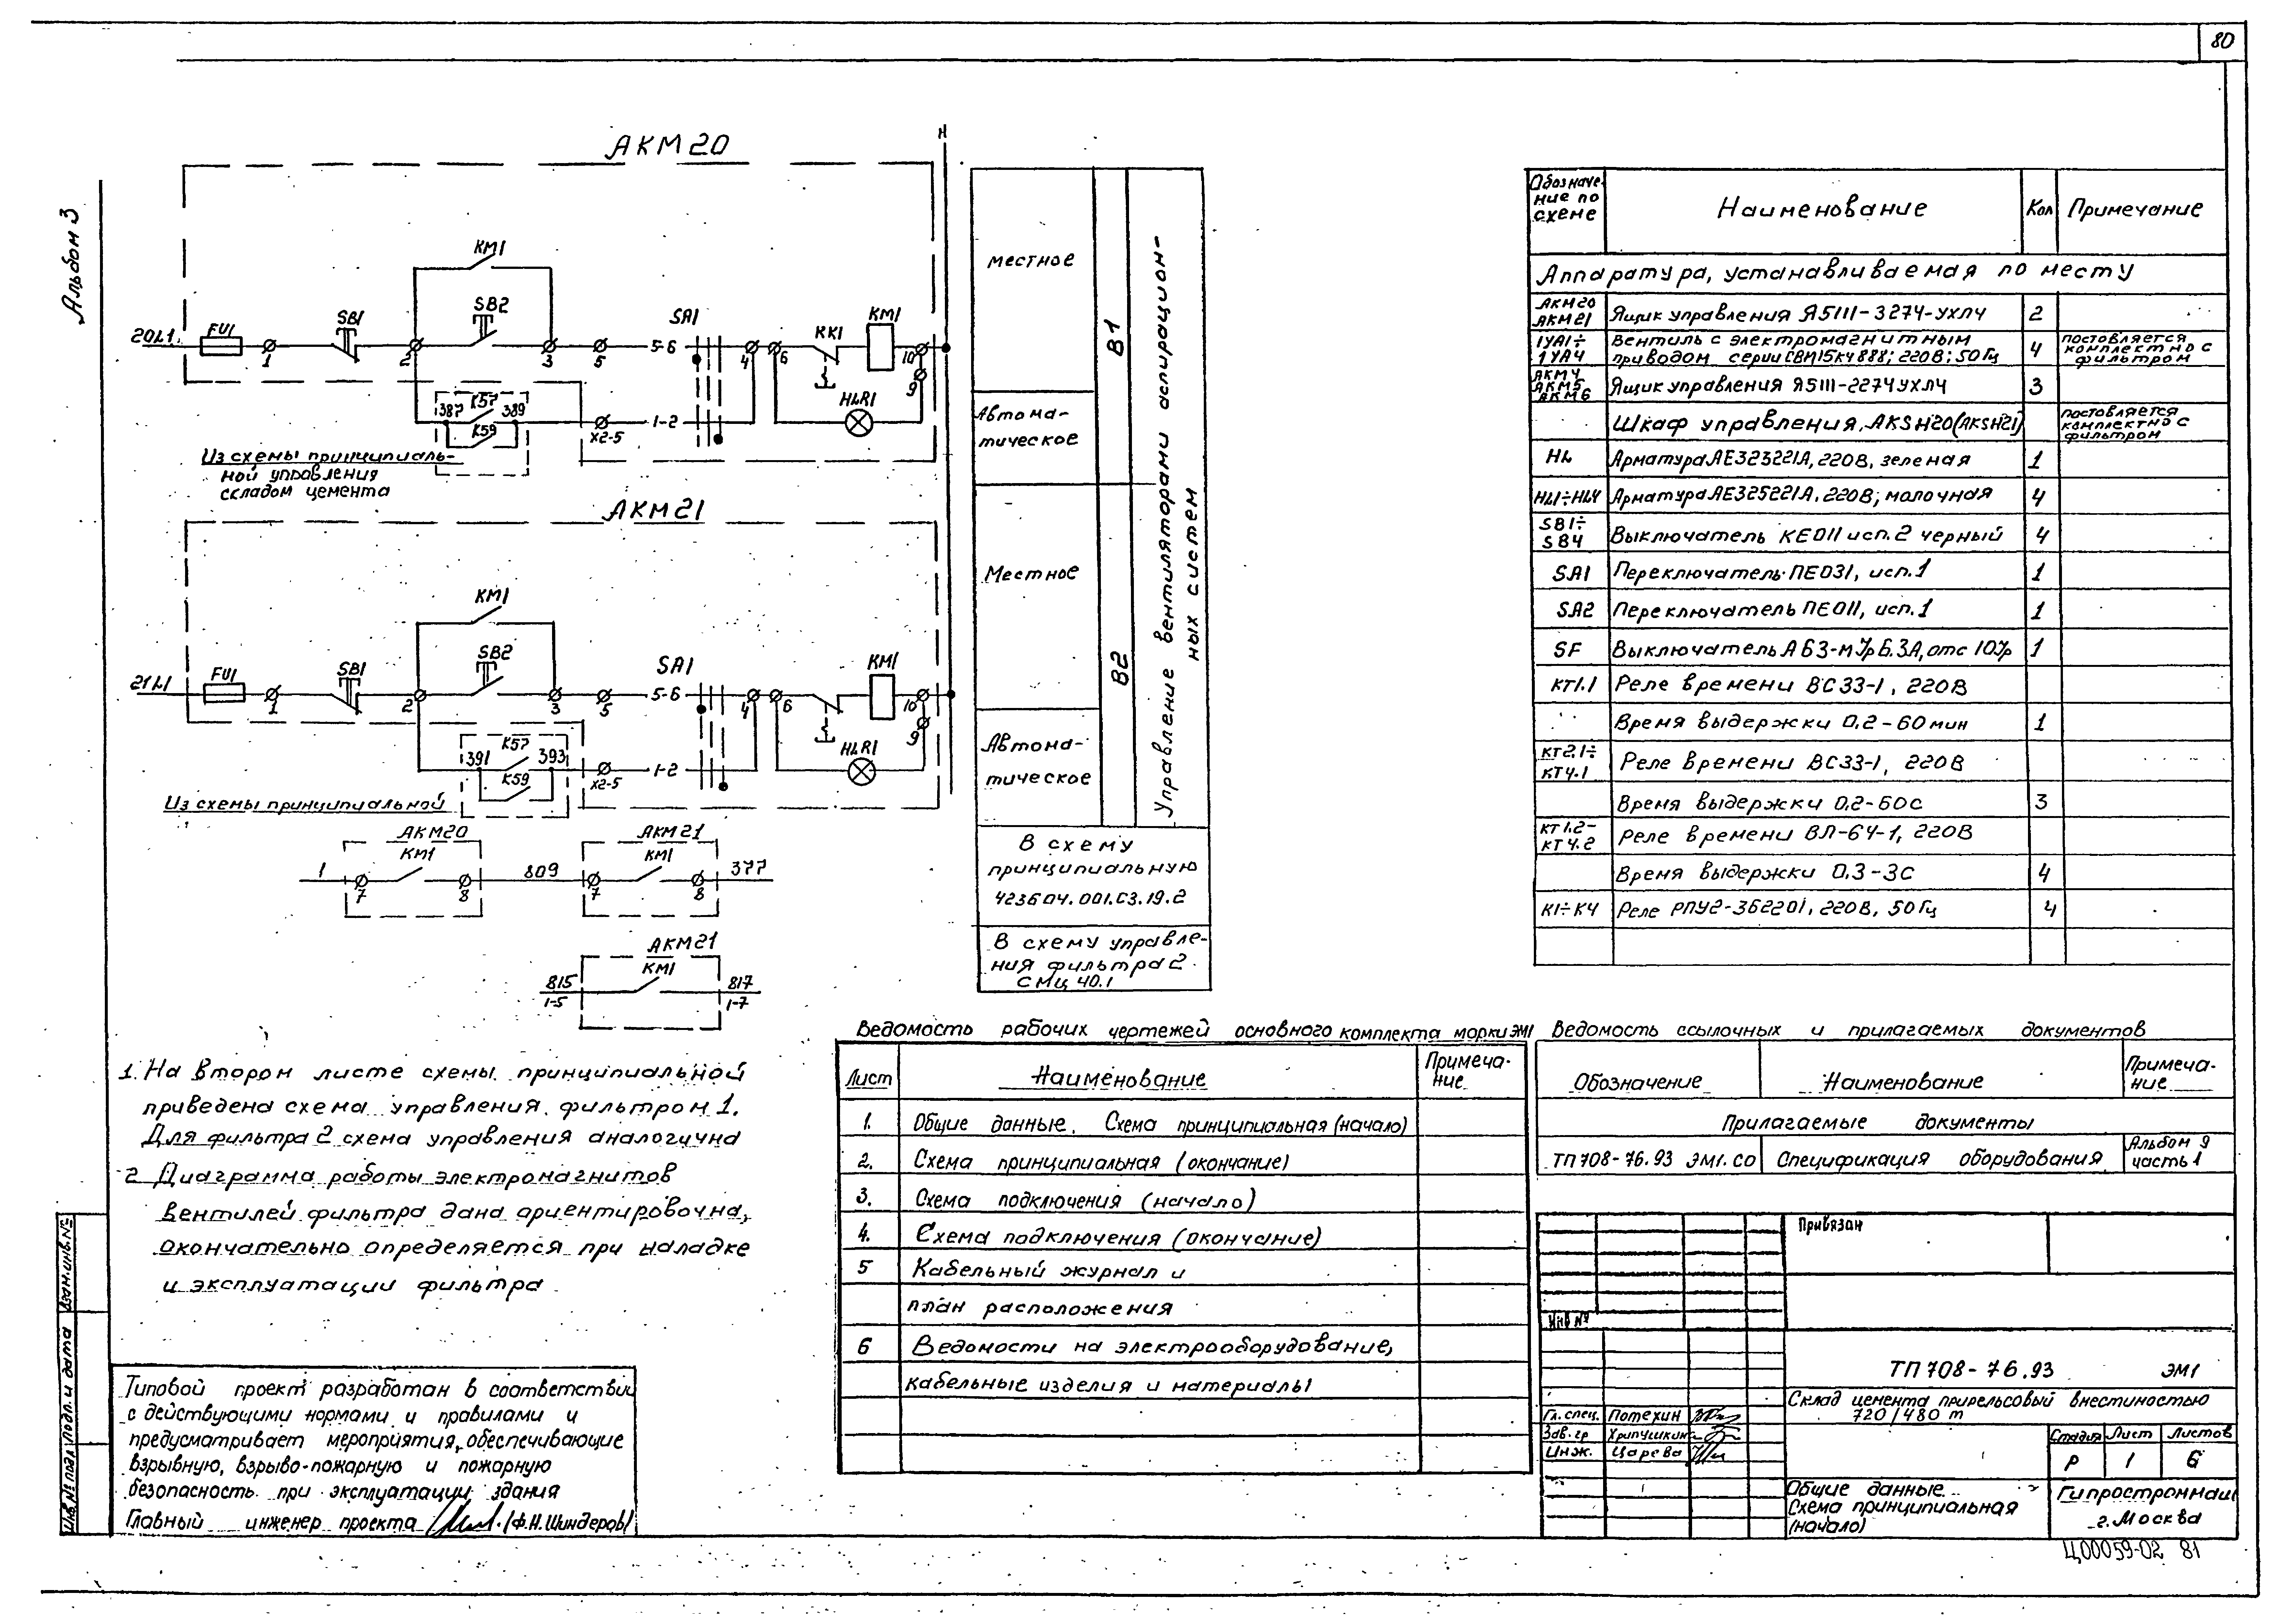 80
Альбом 3
АКМ20
Н
КМ1
SB2
20L1
FU1
SB1
SA1
KK1
КМ1
5-6
1
2
3
5
4
6
10
9
387
К57
389
К59
Х2-5
1-2
HLR1
Из схемы принципиаль-
ной управления
складом цемента
АКМ21
КМ1
SB2
21L1
FU1
SB1
SA1
КМ1
5-6
1
2
3
5
4
6
10
9
391
К57
393
К59
Х2-5
1-2
HLR1
Из схемы принципиальной
АКМ20
КМ1
1
7
8
809
АКМ21
КМ1
7
8
377
АКМ21
КМ1
815
1-5
817
1-7
местное
Автома-
тическое
В1
Местное
Автома-
тическое
В2
Управление вентиляторами аспирацион-
ных систем
В схему
принципиальную
423604.001.С3.19.2
В схему управле-
ния фильтра 2
СМЦ 40.1
Обозначе-
ние по
схеме
Наименование
Кол
Примечание
Аппаратура, устанавливаемая по месту
АКМ20
АКМ21
Ящик управления Я5111-3274-УХЛ4
2
1УА1÷
1УА4
Вентиль с электромагнитным
приводом серии СВМ15К4888; 220В; 50Гц
4
поставляется
комплектно с
фильтром
АКМ4
АКМ5
АКМ6
Ящик управления Я5111-2274УХЛ4
3
Шкаф управления АКSН20(АКSН21)
поставляется
комплектно с
фильтром
HL
Арматура АЕ323221А, 220В, зеленая
1
HL1÷HL4
Арматура АЕ325221А, 220В; молочная
4
SB1÷
SB4
Выключатель КЕ011 исп.2 черный
4
SA1
Переключатель ПЕ031, исп.1
1
SA2
Переключатель ПЕ011, исп.1
1
SF
Выключатель А63-М Jр 6.3А, отс 10Jр
1
КТ1.1
Реле времени ВС33-1, 220В
Время выдержки 0.2-60мин
1
КТ2.1÷
КТ4.1
Реле времени ВС33-1, 220В
Время выдержки 0.2-60с
3
КТ1.2-
КТ4.2
Реле времени ВЛ-64-1, 220В
Время выдержки 0.3-3с
4
К1÷К4
Реле РПУ2-362201, 220В, 50Гц
4
1. На втором листе схемы принципиальной
приведена схема управления фильтром 1.
Для фильтра 2 схема управления аналогична
2. Диаграмма работы электромагнитов
вентилей фильтра дана ориентировочна,
окончательно определяется при наладке
и эксплуатации фильтра
Ведомость рабочих чертежей основного комплекта марки ЭМ1
Лист
Наименование
Примеча-
ние
1. Общие данные. Схема принципиальная (начало)
2. Схема принципиальная (окончание)
3. Схема подключения (начало)
4. Схема подключения (окончание)
5 Кабельный журнал и
план расположения
6 Ведомости на электрооборудование,
кабельные изделия и материалы
Ведомость ссылочных и прилагаемых документов
Обозначение
Наименование
Примеча-
ние
Прилагаемые документы
ТП708-76.93 ЭМ1.СО
Спецификация оборудования
Альбом 9
часть 1
Привязан
Инв №
ТП 708-76.93 ЭМ1
Склад цемента прирельсовый вместимостью
720/480 т
Гл. спец. Потехин
Зав. гр Хрипушкина
Инж. Царева
Стадия
Лист
Листов
Р
1
6
Общие данные.
Схема принципиальная
(начало)
Гипростроммаш
г. Москва
Ц00059-02 81
Типовой проект разработан в соответствии
с действующими нормами и правилами и
предусматривает мероприятия, обеспечивающие
взрывную, взрыво-пожарную и пожарную
безопасность при эксплуатации здания
Главный инженер проекта (Ф.Н. Шиндеров)
Взам.инв.№
Подп. и дата
Инв.№ подл